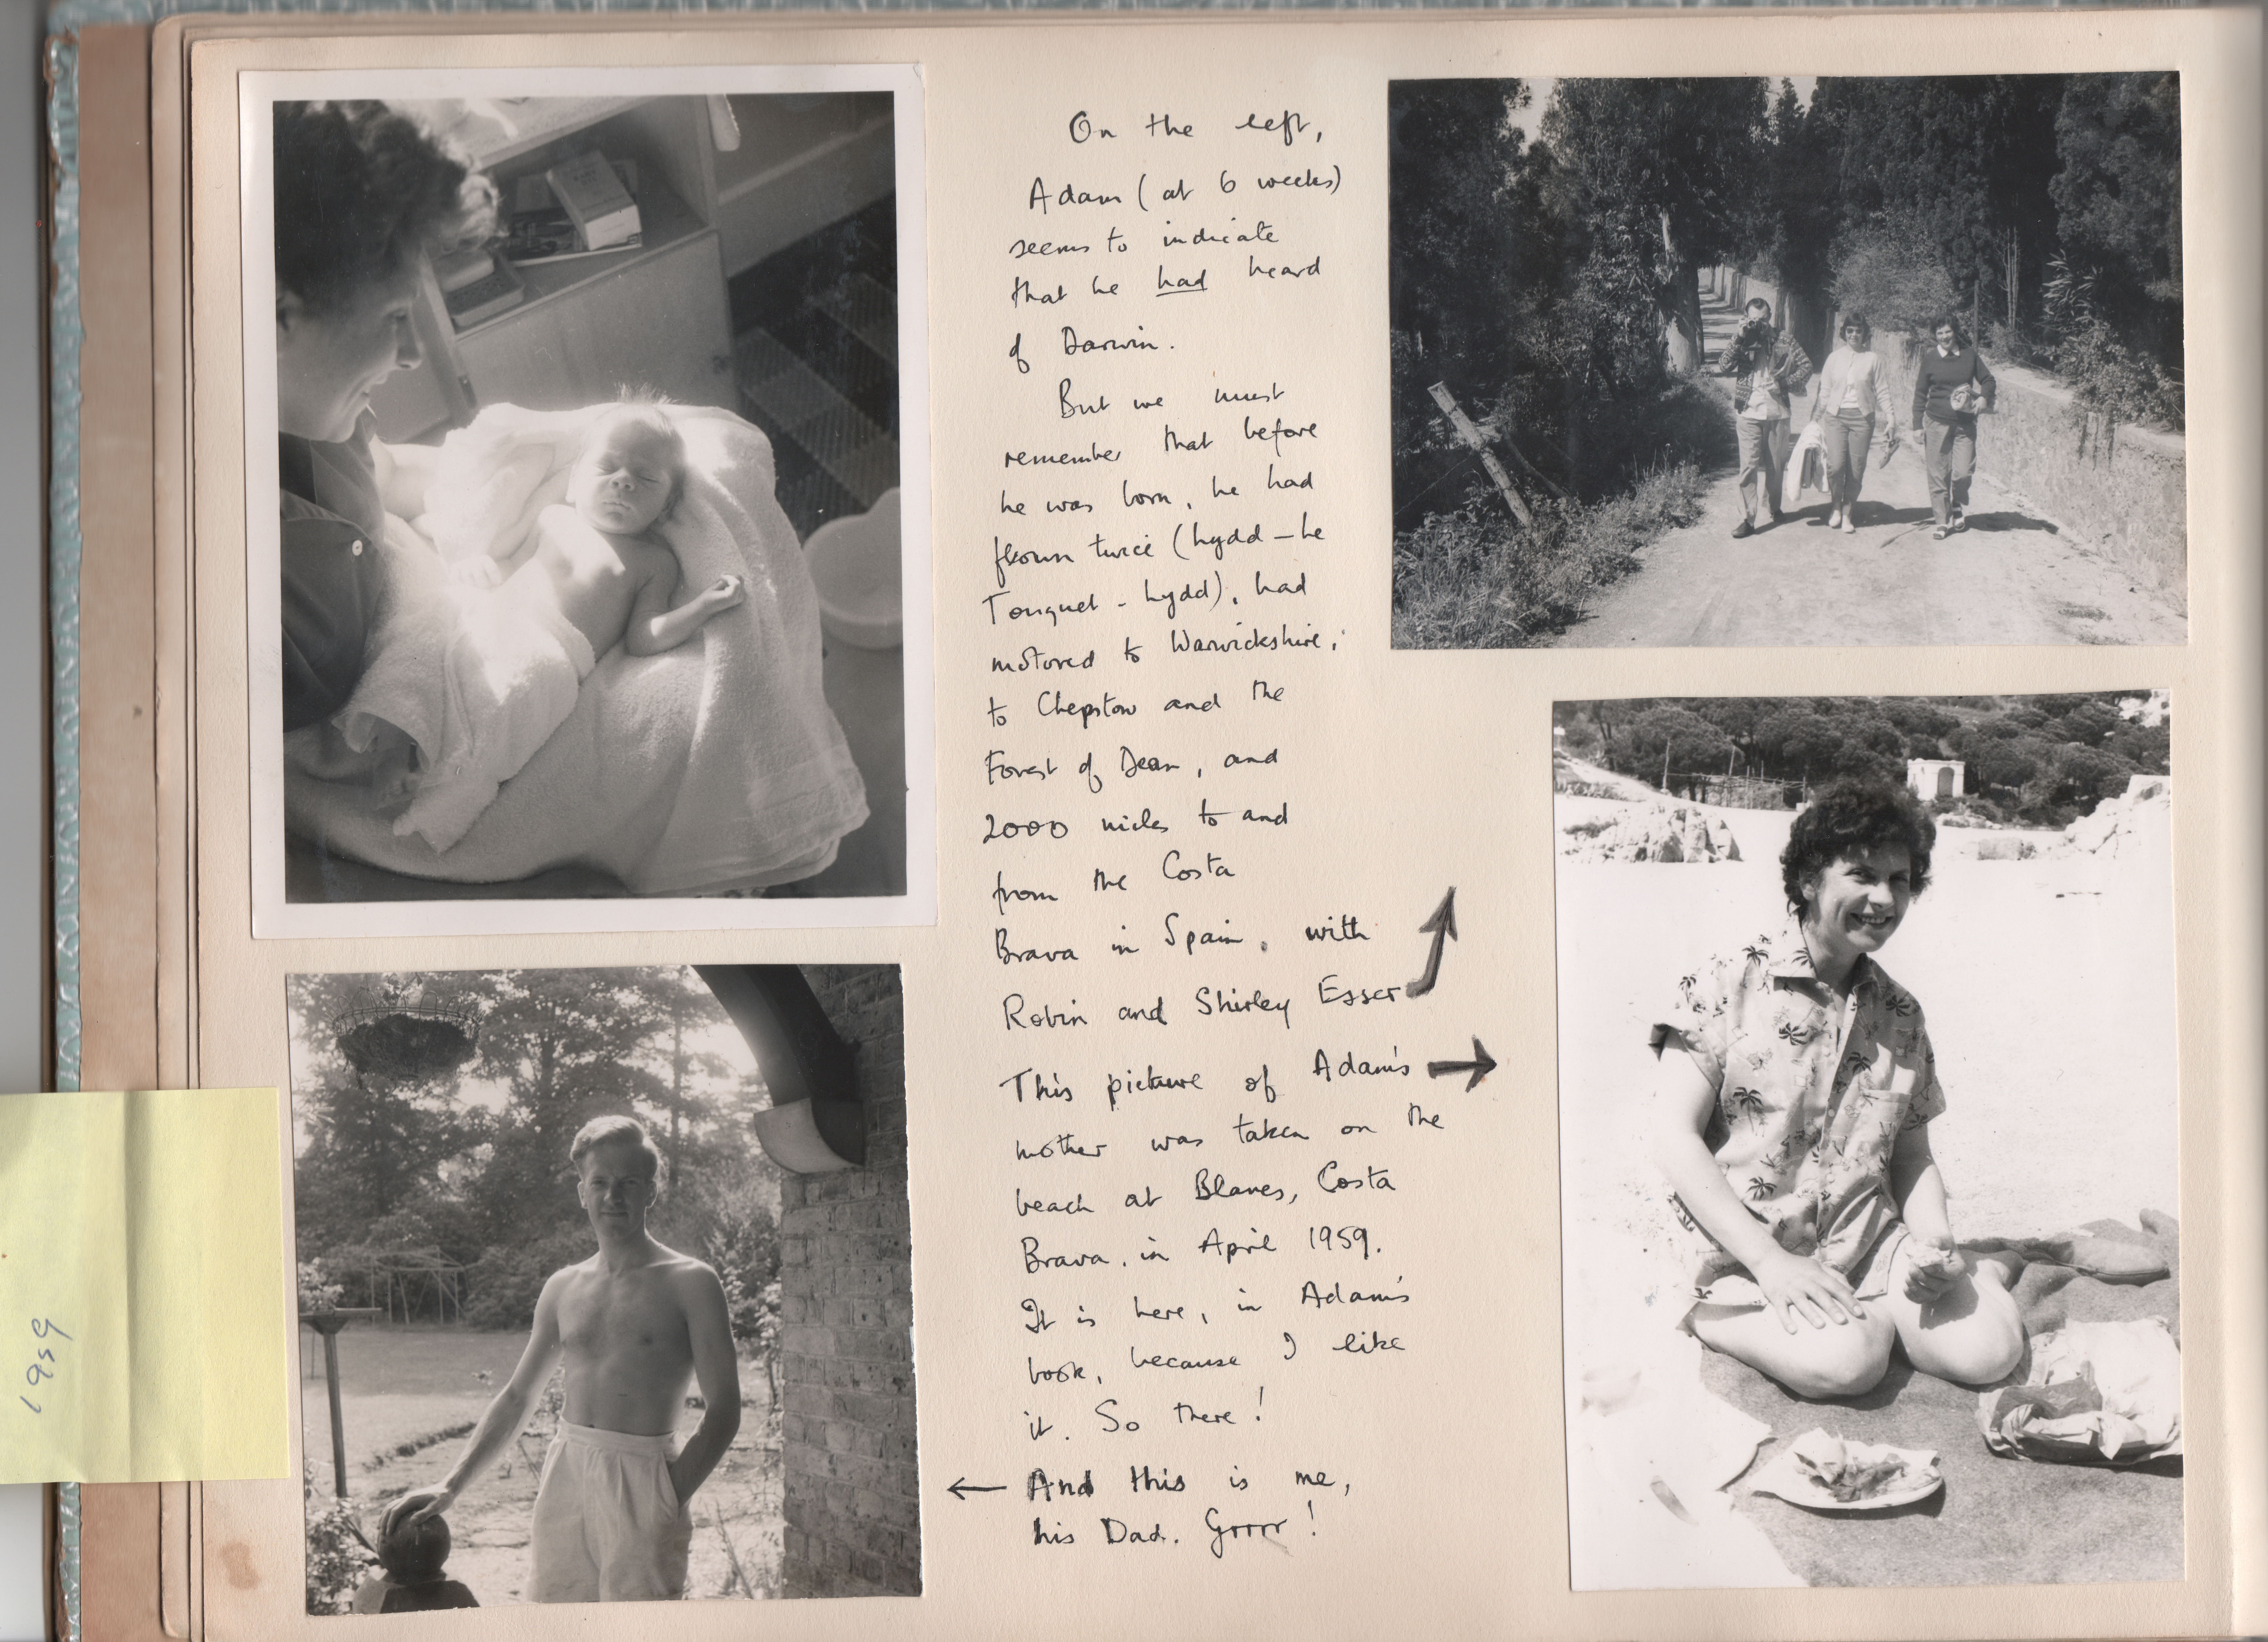 On the left,
Adam (at 6 weeks)
seems to indicate
that he had heard
of Darwin.
But we must
remember that before
he was born, he had
flown twice (Lydd - Le
Touquet - Lydd), had
motored to Warwickshire,
to Chepstow and the
Forest of Dean, and
2000 miles to and
from the Costa
Brava in Spain, with
Robin and Shirley Esser
This picture of Adam's
mother was taken on the
beach at Blanes, Costa
Brava, in April 1959.
It is here, in Adam's
book, because I like
it. So there!
And this is me,
his Dad. Grrrr!
1959